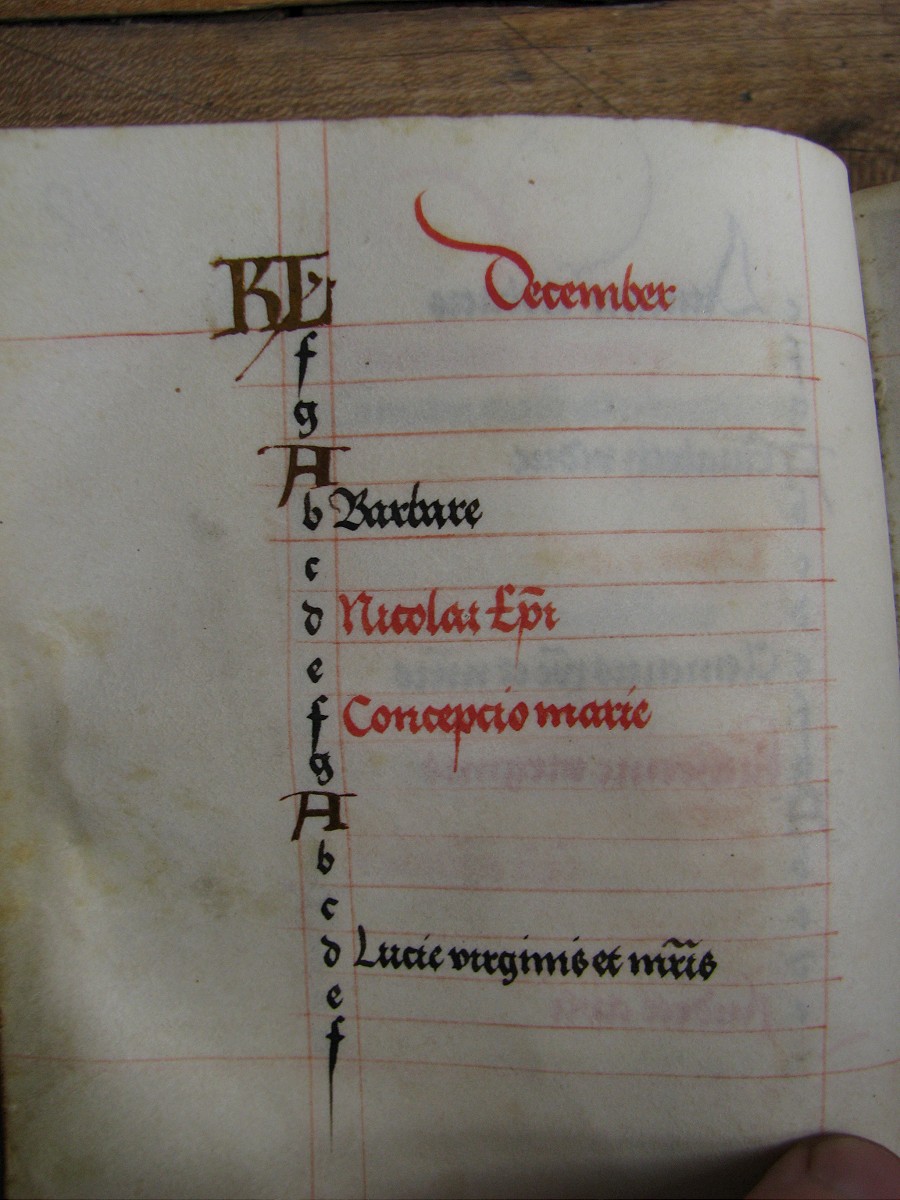 KL December
f
g
A
b Barbare
c
d Nicolai Ep̄i
e
f Concepcio marie
g
A
b
c
d Lucie virginis et mr̄is
e
f